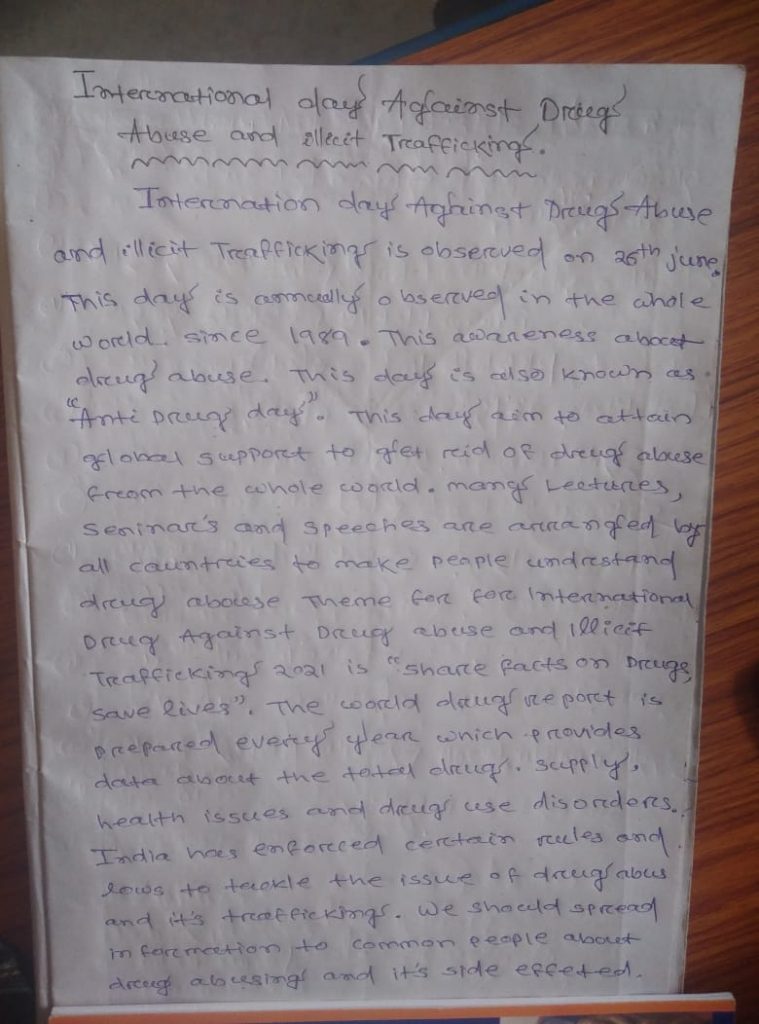 International day Against Drug
Abuse and illicit Trafficking.
Internation day Against Drug Abuse
and illicit Trafficking is observed on 26th june.
This day is annually observed in the whole
world. since 1989. This awareness about
drug abuse. This day is also known as
"Anti Drug day". This day aim to attain
global support to get rid of drug abuse
from the whole world. many Lectures,
Seninar's and speeches are arranged by
all countries to make people undrstand
drug abouse Theme for for International
Drug Against Drug abuse and illicit
Trafficking 2021 is "share facts on Drugs,
save lives". The world drug report is
prepared every year which provides
data about the total drug. supply,
health issues and drug use disorders.
India has enforced certain rules and
lows to tackle the issue of drug abus
and it's trafficking. We should spread
information to common people about
drug abusing and it's side effeted.